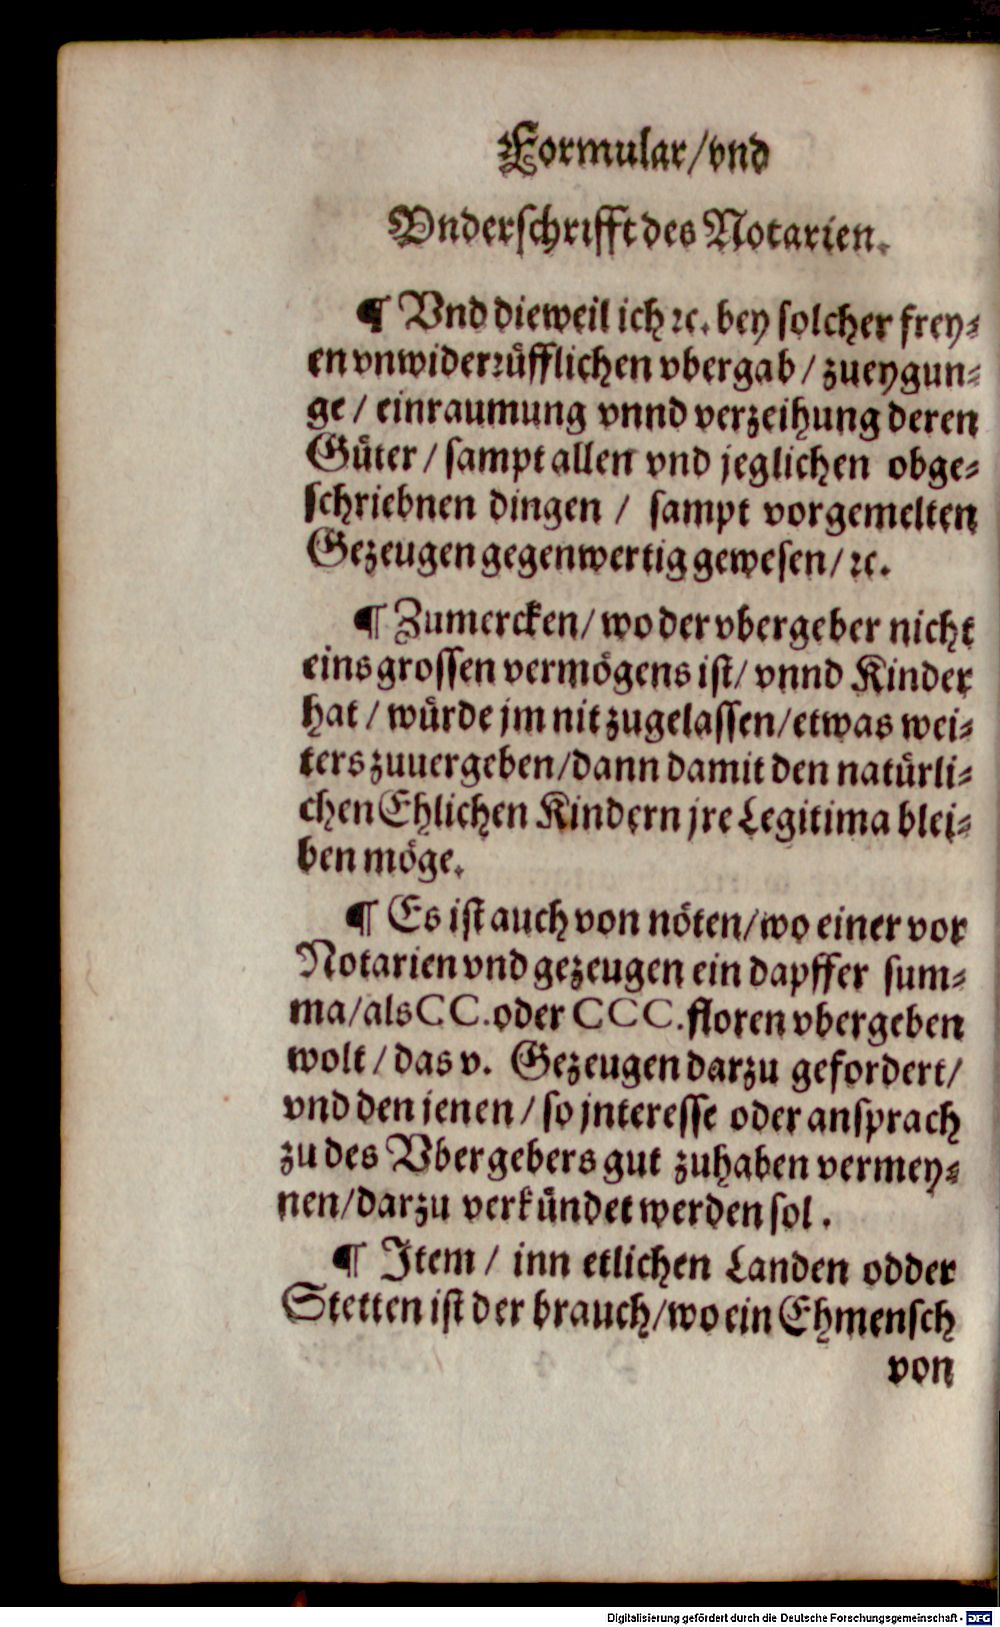 Formular/vnd
Vnderschrifft des Notarien.
¶ Vnd dieweil ich ꝛc. bey solcher frey⸗
en vnwiderrůfflichen vbergab / zueygun⸗
ge / einraumung vnnd verzeihung deren
Gůter / sampt allen vnd jeglichen obge⸗
schriebnen dingen / sampt vorgemelten
Gezeugen gegenwertig gewesen / ꝛc.
¶ Zumercken / wo der vbergeber nicht
eins grossen vermögens ist / vnnd Kinder
hat / würde jm nit zugelassen / etwas wei⸗
ters zuuergeben / dann damit den natürli⸗
chen Ehlichen Kindern jre Legitima blei⸗
ben möge.
¶ Es ist auch von nöten / wo einer vor
Notarien vnd gezeugen ein dapffer sum⸗
ma / als CC. oder CCC. floren vbergeben
wolt / das v. Gezeugen darzu gefordert /
vnd den jenen / so jnteresse oder ansprach
zu des Vbergebers gut zuhaben vermey⸗
nen / darzu verkündet werden sol.
¶ Item / inn etlichen Landen odder
Stetten ist der brauch / wo ein Ehmensch
von
Digitalisierung gefördert durch die Deutsche Forschungsgemeinschaft - DFG